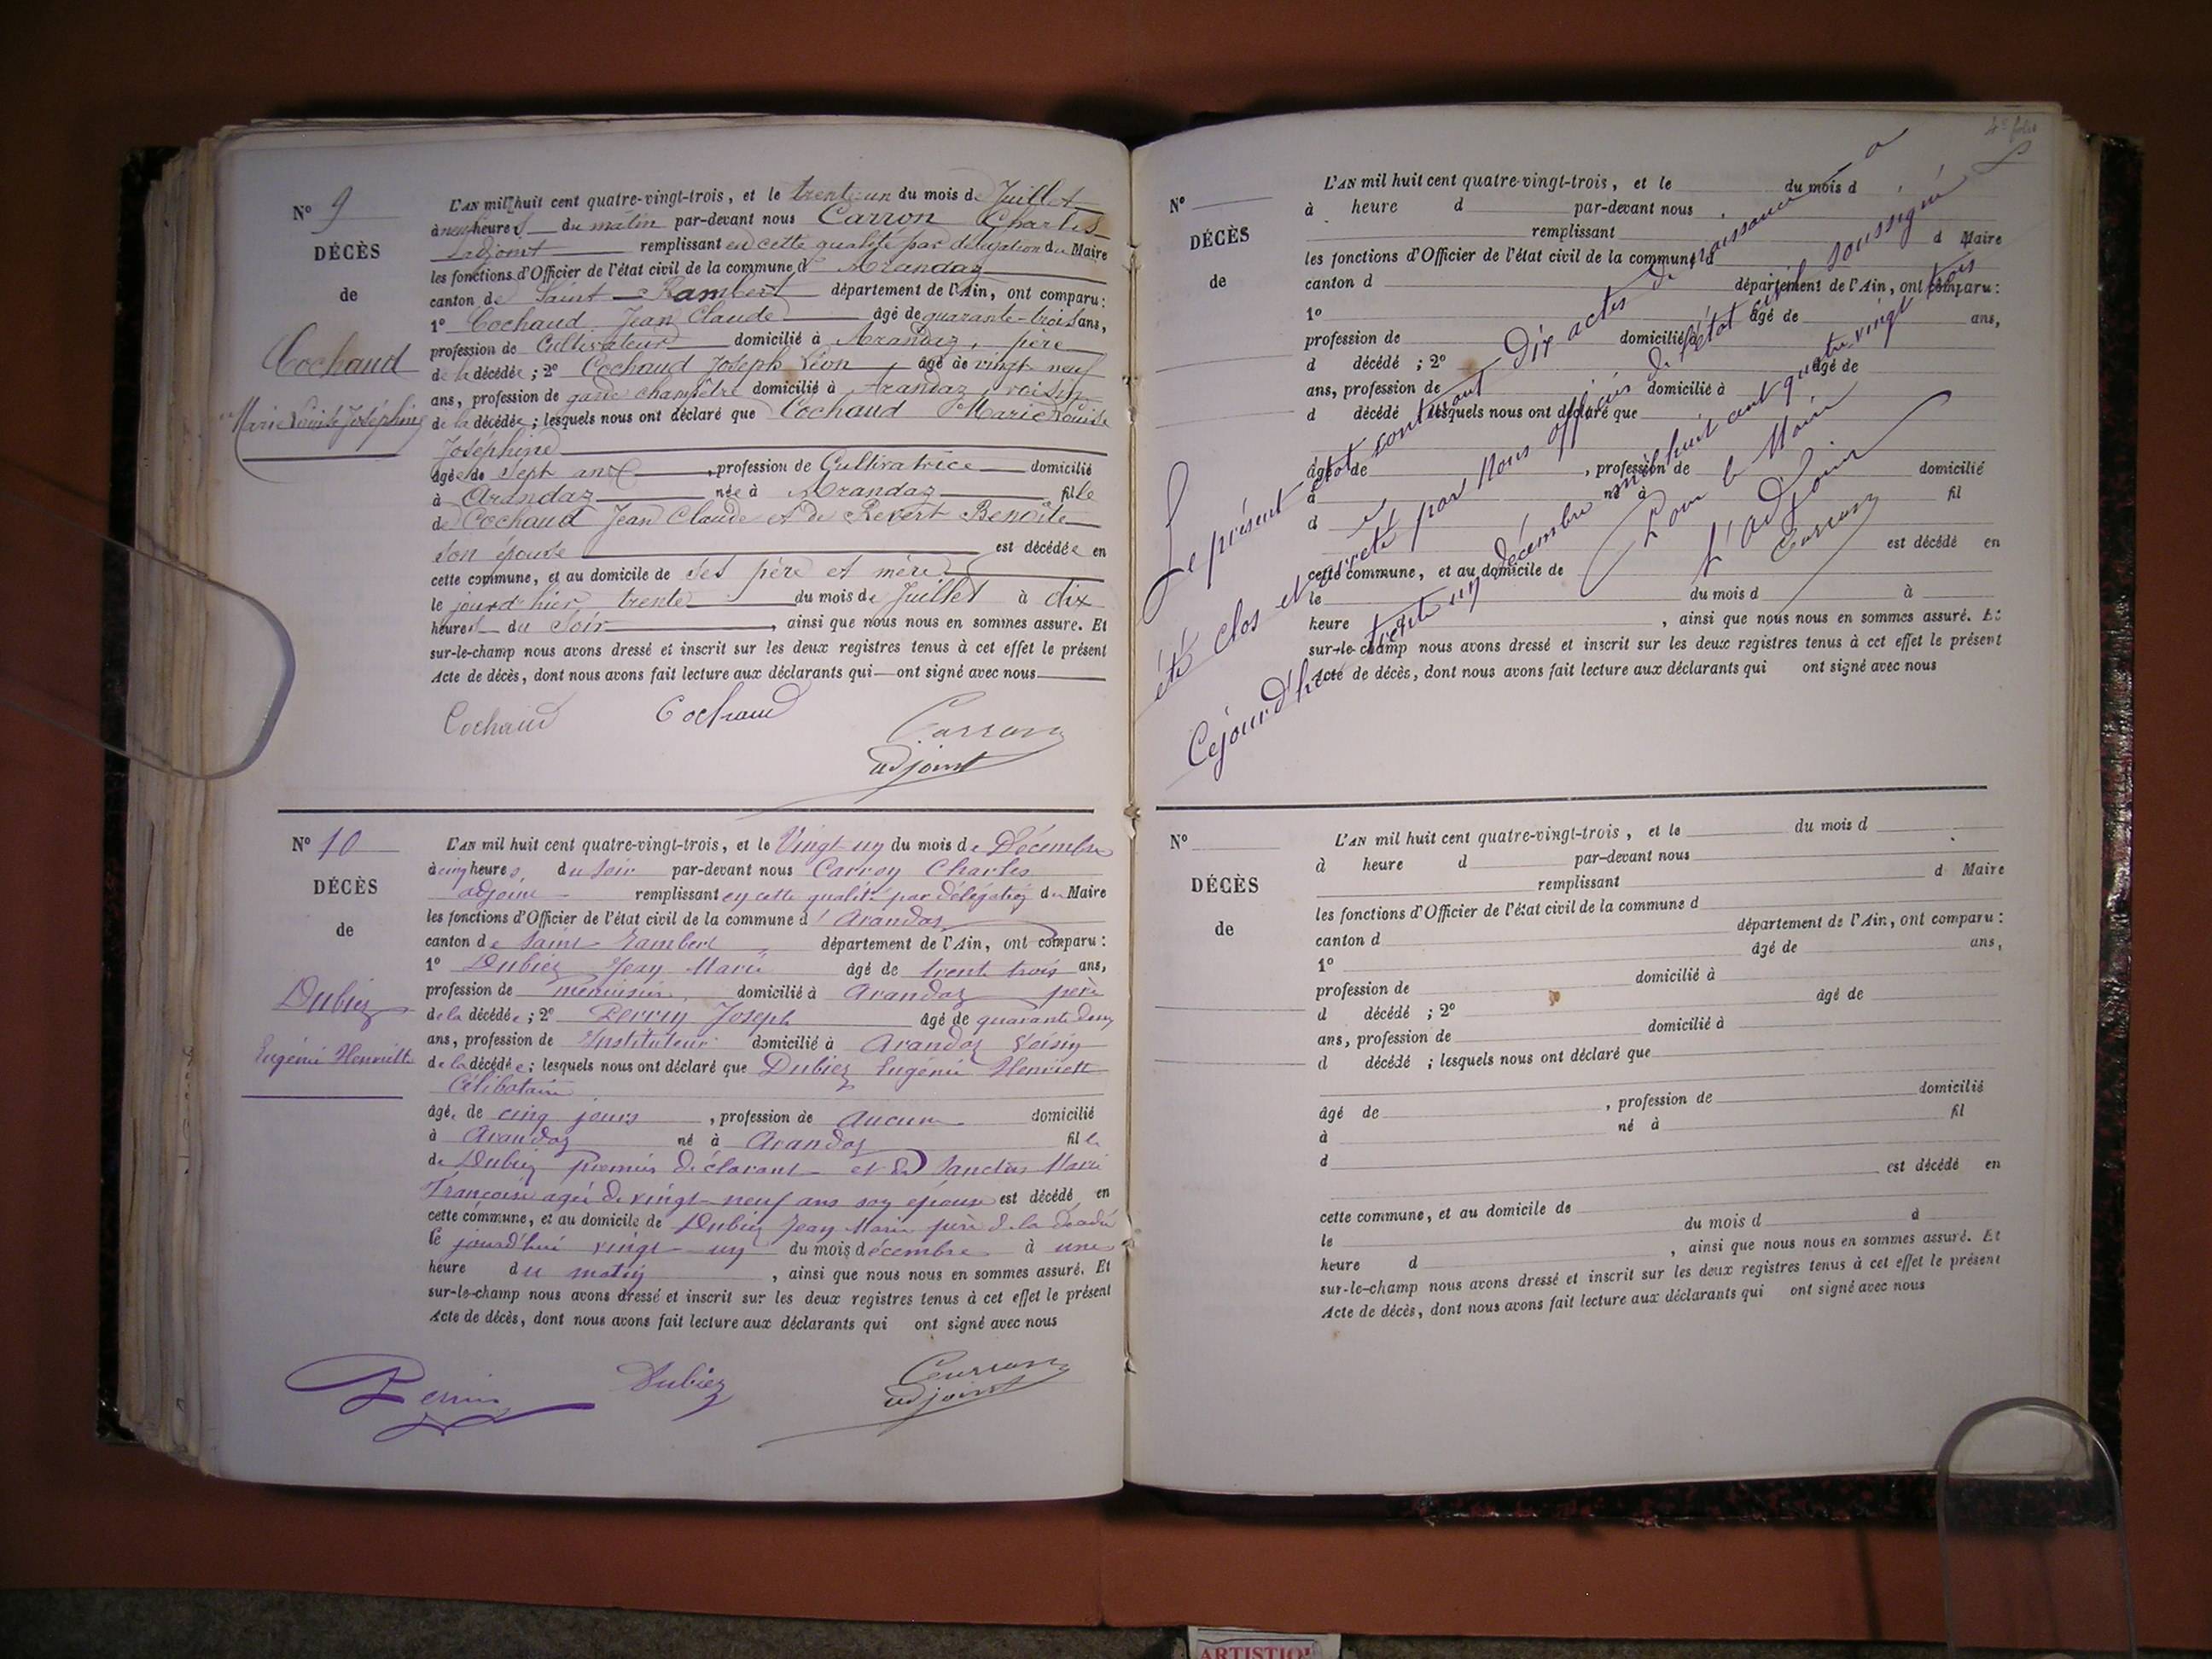 N° 9
DÉCÈS
de
Cochaud
Marie Louise Joséphine
L'AN mil huit cent quatre-vingt-trois, et le trente-un du mois de Juillet
à neuf heures du matin par-devant nous Carron Charles
adjoint remplissant en cette qualité par délégation du Maire
les fonctions d'Officier de l'état civil de la commune d' Arandaz
canton de Saint-Rambert département de l'Ain, ont comparu :
1° Cochaud Jean Claude âgé de quarante-trois ans,
profession de Cultivateur domicilié à Arandaz, père
de la décédée ; 2° Cochaud Joseph Léon âgé de vingt neuf
ans, profession de garde champêtre domicilié à Arandaz, voisin
de la décédée ; lesquels nous ont déclaré que Cochaud Marie Louise
Joséphine
âgée de sept ans, profession de Cultivatrice domicilié
à Arandaz née à Arandaz fille
de Cochaud Jean Claude et de Revert Benoîte
son épouse est décédée en
cette commune, et au domicile de ses père et mère
le jour d'hier trente du mois de Juillet à dix
heures du soir, ainsi que nous nous en sommes assuré. Et
sur-le-champ nous avons dressé et inscrit sur les deux registres tenus à cet effet le présent
Acte de décès, dont nous avons fait lecture aux déclarants qui ont signé avec nous
Cochaud Cochaud Carron
adjoint
N° 10
DÉCÈS
de
Dubiez
Eugénie Henriette
L'AN mil huit cent quatre-vingt-trois, et le Vingt-un du mois de Décembre
à cinq heures, du soir par-devant nous Carron Charles
adjoint remplissant en cette qualité par délégation du Maire
les fonctions d'Officier de l'état civil de la commune d' Arandaz
canton de Saint-Rambert département de l'Ain, ont comparu :
1° Dubiez Jean Marie âgé de trente trois ans,
profession de menuisier, domicilié à Arandaz père
de la décédée ; 2° Perrin Joseph âgé de quarante deux
ans, profession de Instituteur domicilié à Arandaz Voisin
de la décédée ; lesquels nous ont déclaré que Dubiez Eugénie Henriette
Célibataire
âgé, de cinq jours, profession de Aucune domicilié
à Arandaz né à Arandaz fille
de Dubiez premier déclarant et de Sanctus Marie
Françoise agée de vingt-neuf ans son epouse est décédé en
cette commune, et au domicile de Dubiez Jean Marie père de la décédée
le jourd'hui vingt-un du mois décembre à une
heure du matin, ainsi que nous nous en sommes assuré. Et
sur-le-champ nous avons dressé et inscrit sur les deux registres tenus à cet effet le présent
Acte de décès, dont nous avons fait lecture aux déclarants qui ont signé avec nous
Perrin Dubiez Carron
adjoint
4e folio
N°
DÉCÈS
de
L'AN mil huit cent quatre-vingt-trois, et le du mois d
à heure d par-devant nous
remplissant d Maire
les fonctions d'Officier de l'état civil de la commune d
canton d département de l'Ain, ont comparu :
1° âgé de ans,
profession de domicilié à
d décédé ; 2° âgé de
ans, profession de domicilié à
d décédé lesquels nous ont déclaré que
âgé de , profession de domicilié
à né à fil
d
est décédé en
cette commune, et au domicile de
le du mois d à
heure , ainsi que nous nous en sommes assuré. Et
sur-le-champ nous avons dressé et inscrit sur les deux registres tenus à cet effet le présent
Acte de décès, dont nous avons fait lecture aux déclarants qui ont signé avec nous
Le présent état contenant Dix actes de naissance a
été clos et arreté par Nous officier de l'état civil soussigné
Cejourd'hui trente un décembre mil huit cent quatre vingt trois
Pour le Maire
L'adjoint
Carron
N°
DÉCÈS
de
L'AN mil huit cent quatre-vingt-trois, et le du mois d
à heure d par-devant nous
remplissant d Maire
les fonctions d'Officier de l'état civil de la commune d
canton d département de l'Ain, ont comparu :
1° âgé de ans,
profession de domicilié à
d décédé ; 2° âgé de
ans, profession de domicilié à
d décédé ; lesquels nous ont déclaré que
âgé de , profession de domicilié
à né à fil
d
est décédé en
cette commune, et au domicile de
le du mois d à
heure d , ainsi que nous nous en sommes assuré. Et
sur-le-champ nous avons dressé et inscrit sur les deux registres tenus à cet effet le présent
Acte de décès, dont nous avons fait lecture aux déclarants qui ont signé avec nous